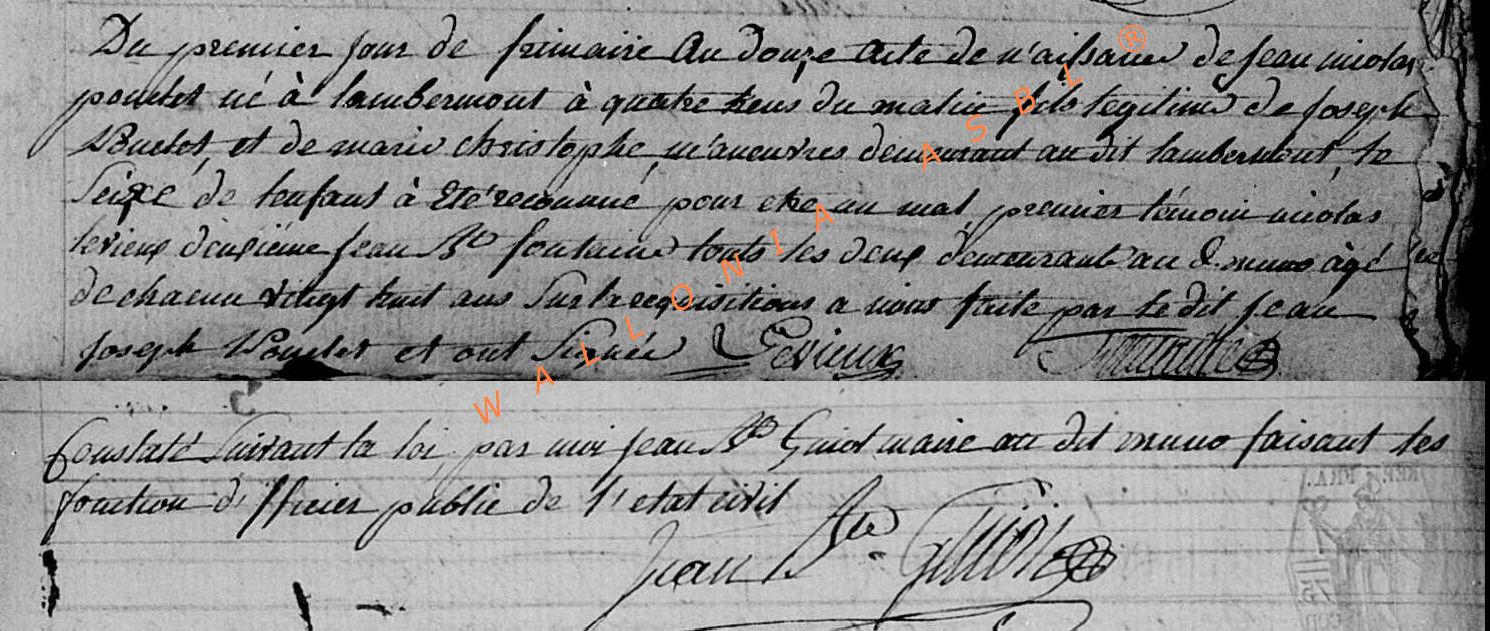 Du premier jour de frimaire an douze acte de n'aissance de jean nicolas
poncelet né à lambermont à quatre heurs du matin fils legitime de joseph
Poncelet et de marie christophe, m'aneuvres demeurant au dit lambermont, le
seixe de lenfant à été reconnue pour etre un mal, premier témoin nicolas
levieux deuxiéme jean Bte fontaine touts les deux demeurant au d. muno âgé
de chacun vingt huit ans sur la requisitions a nous faite par le dit jean
joseph et ont Signée Levieux fontaine
Constaté Suivant la loi, par moi jean Bte Guiot maire au dit muno faisant les
fonction d'fficier public de l'etat civil
Jean Bte Guiot
WALLONIA ASBL ®